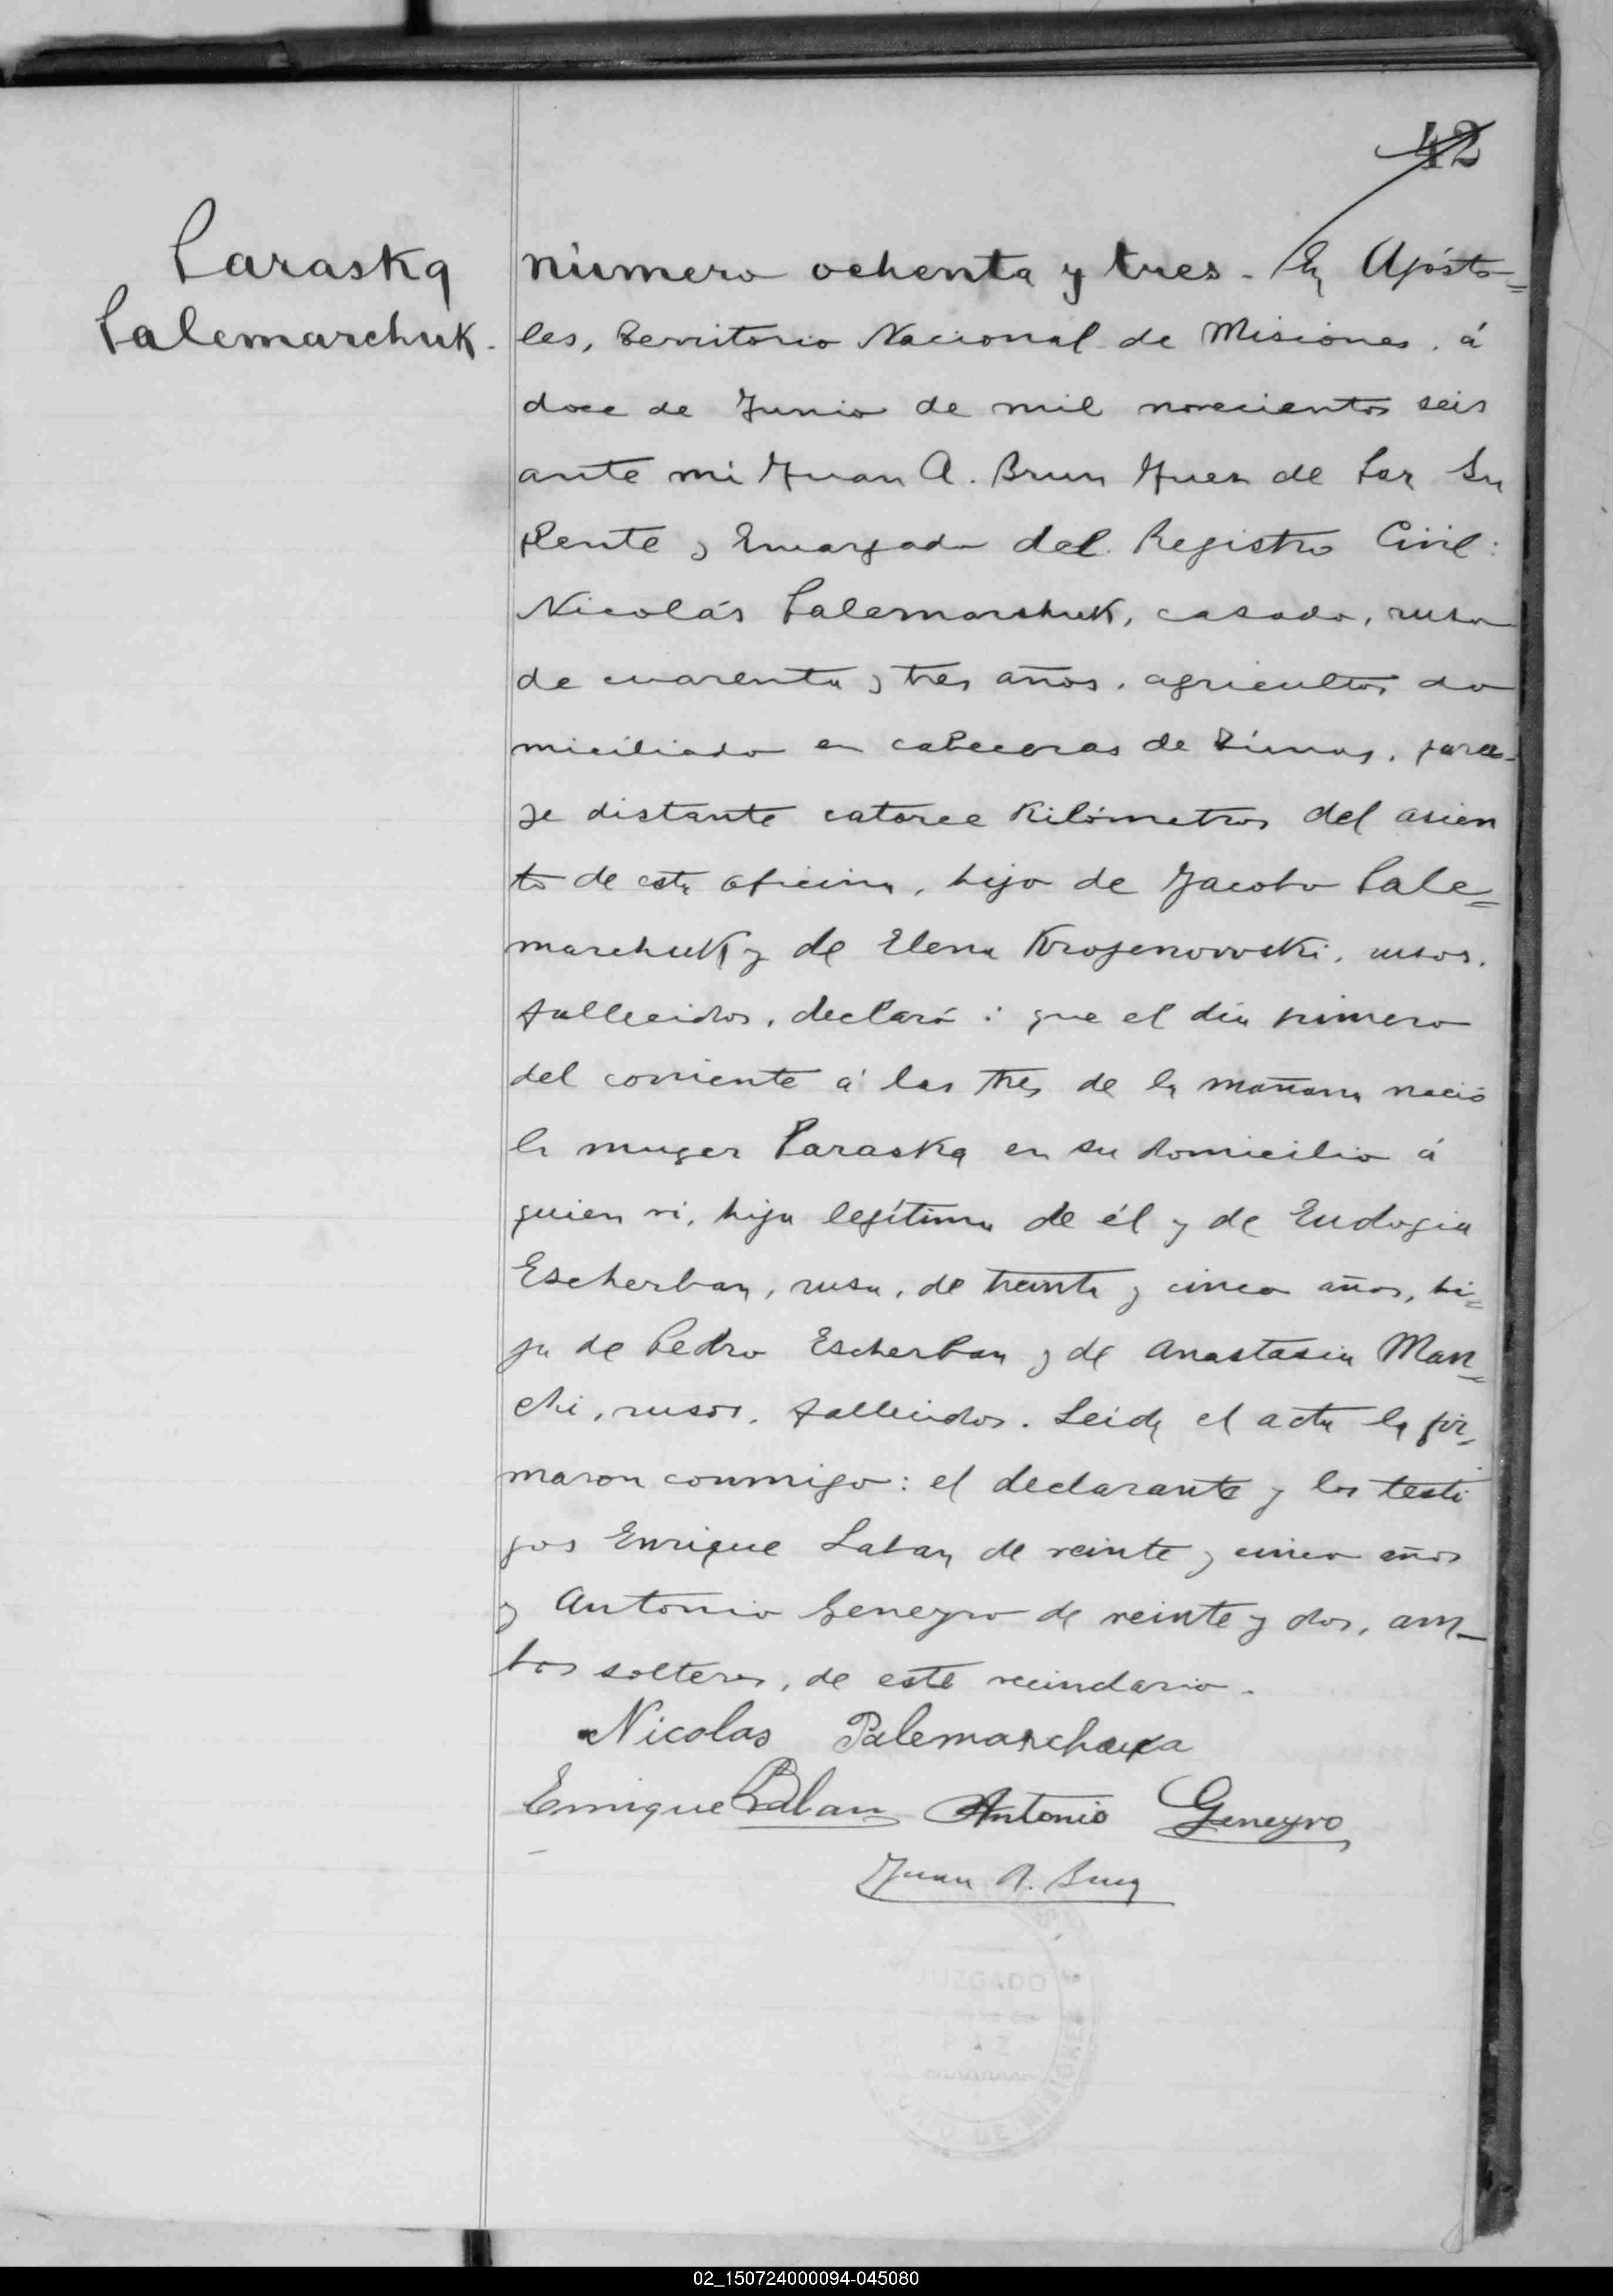 42
Paraska
Palemarchuk.
número ochenta y tres. En Apósto=
les, Territorio Nacional de Misiones, á
doce de Junio de mil novecientos seis
ante mi Juan A. Brun Juez de Paz Su
plente y Encargado del Registro Civil:
Nicolás Palemarchuk, casado, ruso
de cuarenta y tres años, agricultor do
miciliado en cabeceras de , para-
je distante catorce kilómetros del asien
to de esta oficina, hijo de Jacobo Pale=
marchuk y de Elena Krojenowski, rusos,
fallecidos, declaró: que el día primero
del corriente á las tres de la mañana nació
la muger Paraska en su domicilio á
quien vi, hija legítima de él y de Eudogia
Escherban, rusa, de treinta y cinco años, hi=
ja de Pedro Escherban y de Anastasia Man=
chi, rusos, fallecidos. Leida el acta la fir=
maron conmigo: el declarante y los testi
gos Enrique de veinte y cinco años
y Antonio Geneyro de veinte y dos, am-
bos solteros, de este vecindario.
Nicolas Palemarchuka
Enrique Antonio Geneyro
Juan A. Brun
JUZGADO
PAZ
DE MISIONES
02_150724000094-045080